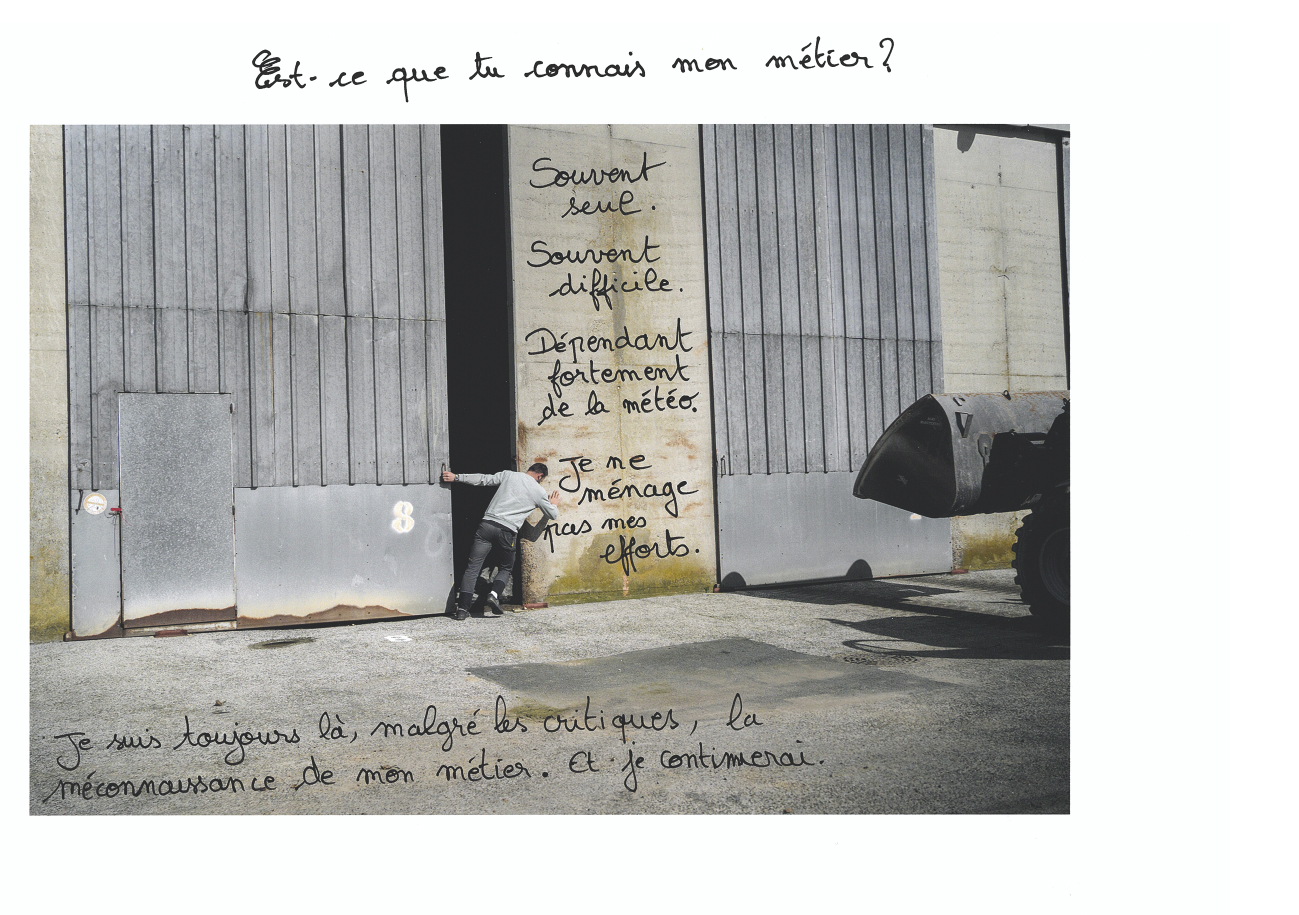 Est-ce que tu connais mon métier?
Souvent
seul.
Souvent
difficile.
Dépendant
fortement
de la météo.
Je ne
ménage
pas mes
efforts.
8
Je suis toujours là, malgré les critiques, la
méconnaissance de mon métier. Et je continuerai.